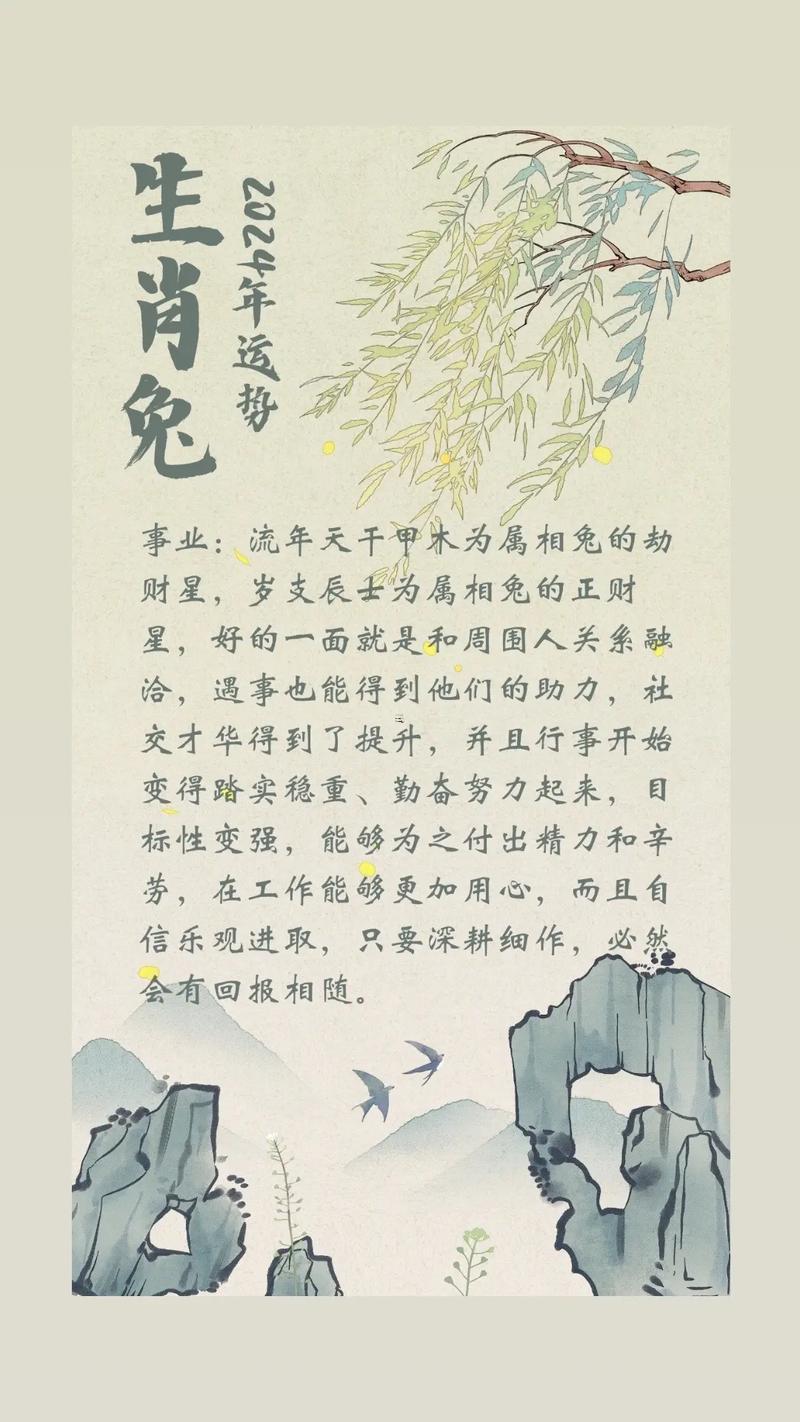 生肖兔
2024年运势
事业：流年天干甲木为属相兔的劫
财星，岁支辰土为属相兔的正财
星，好的一面就是和周围人关系融
洽，遇事也能得到他们的助力，社
交才华得到了提升，并且行事开始
变得踏实稳重、勤奋努力起来，目
标性变强，能够为之付出精力和辛
劳，在工作能够更加用心，而且自
信乐观进取，只要深耕细作，必然
会有回报相随。